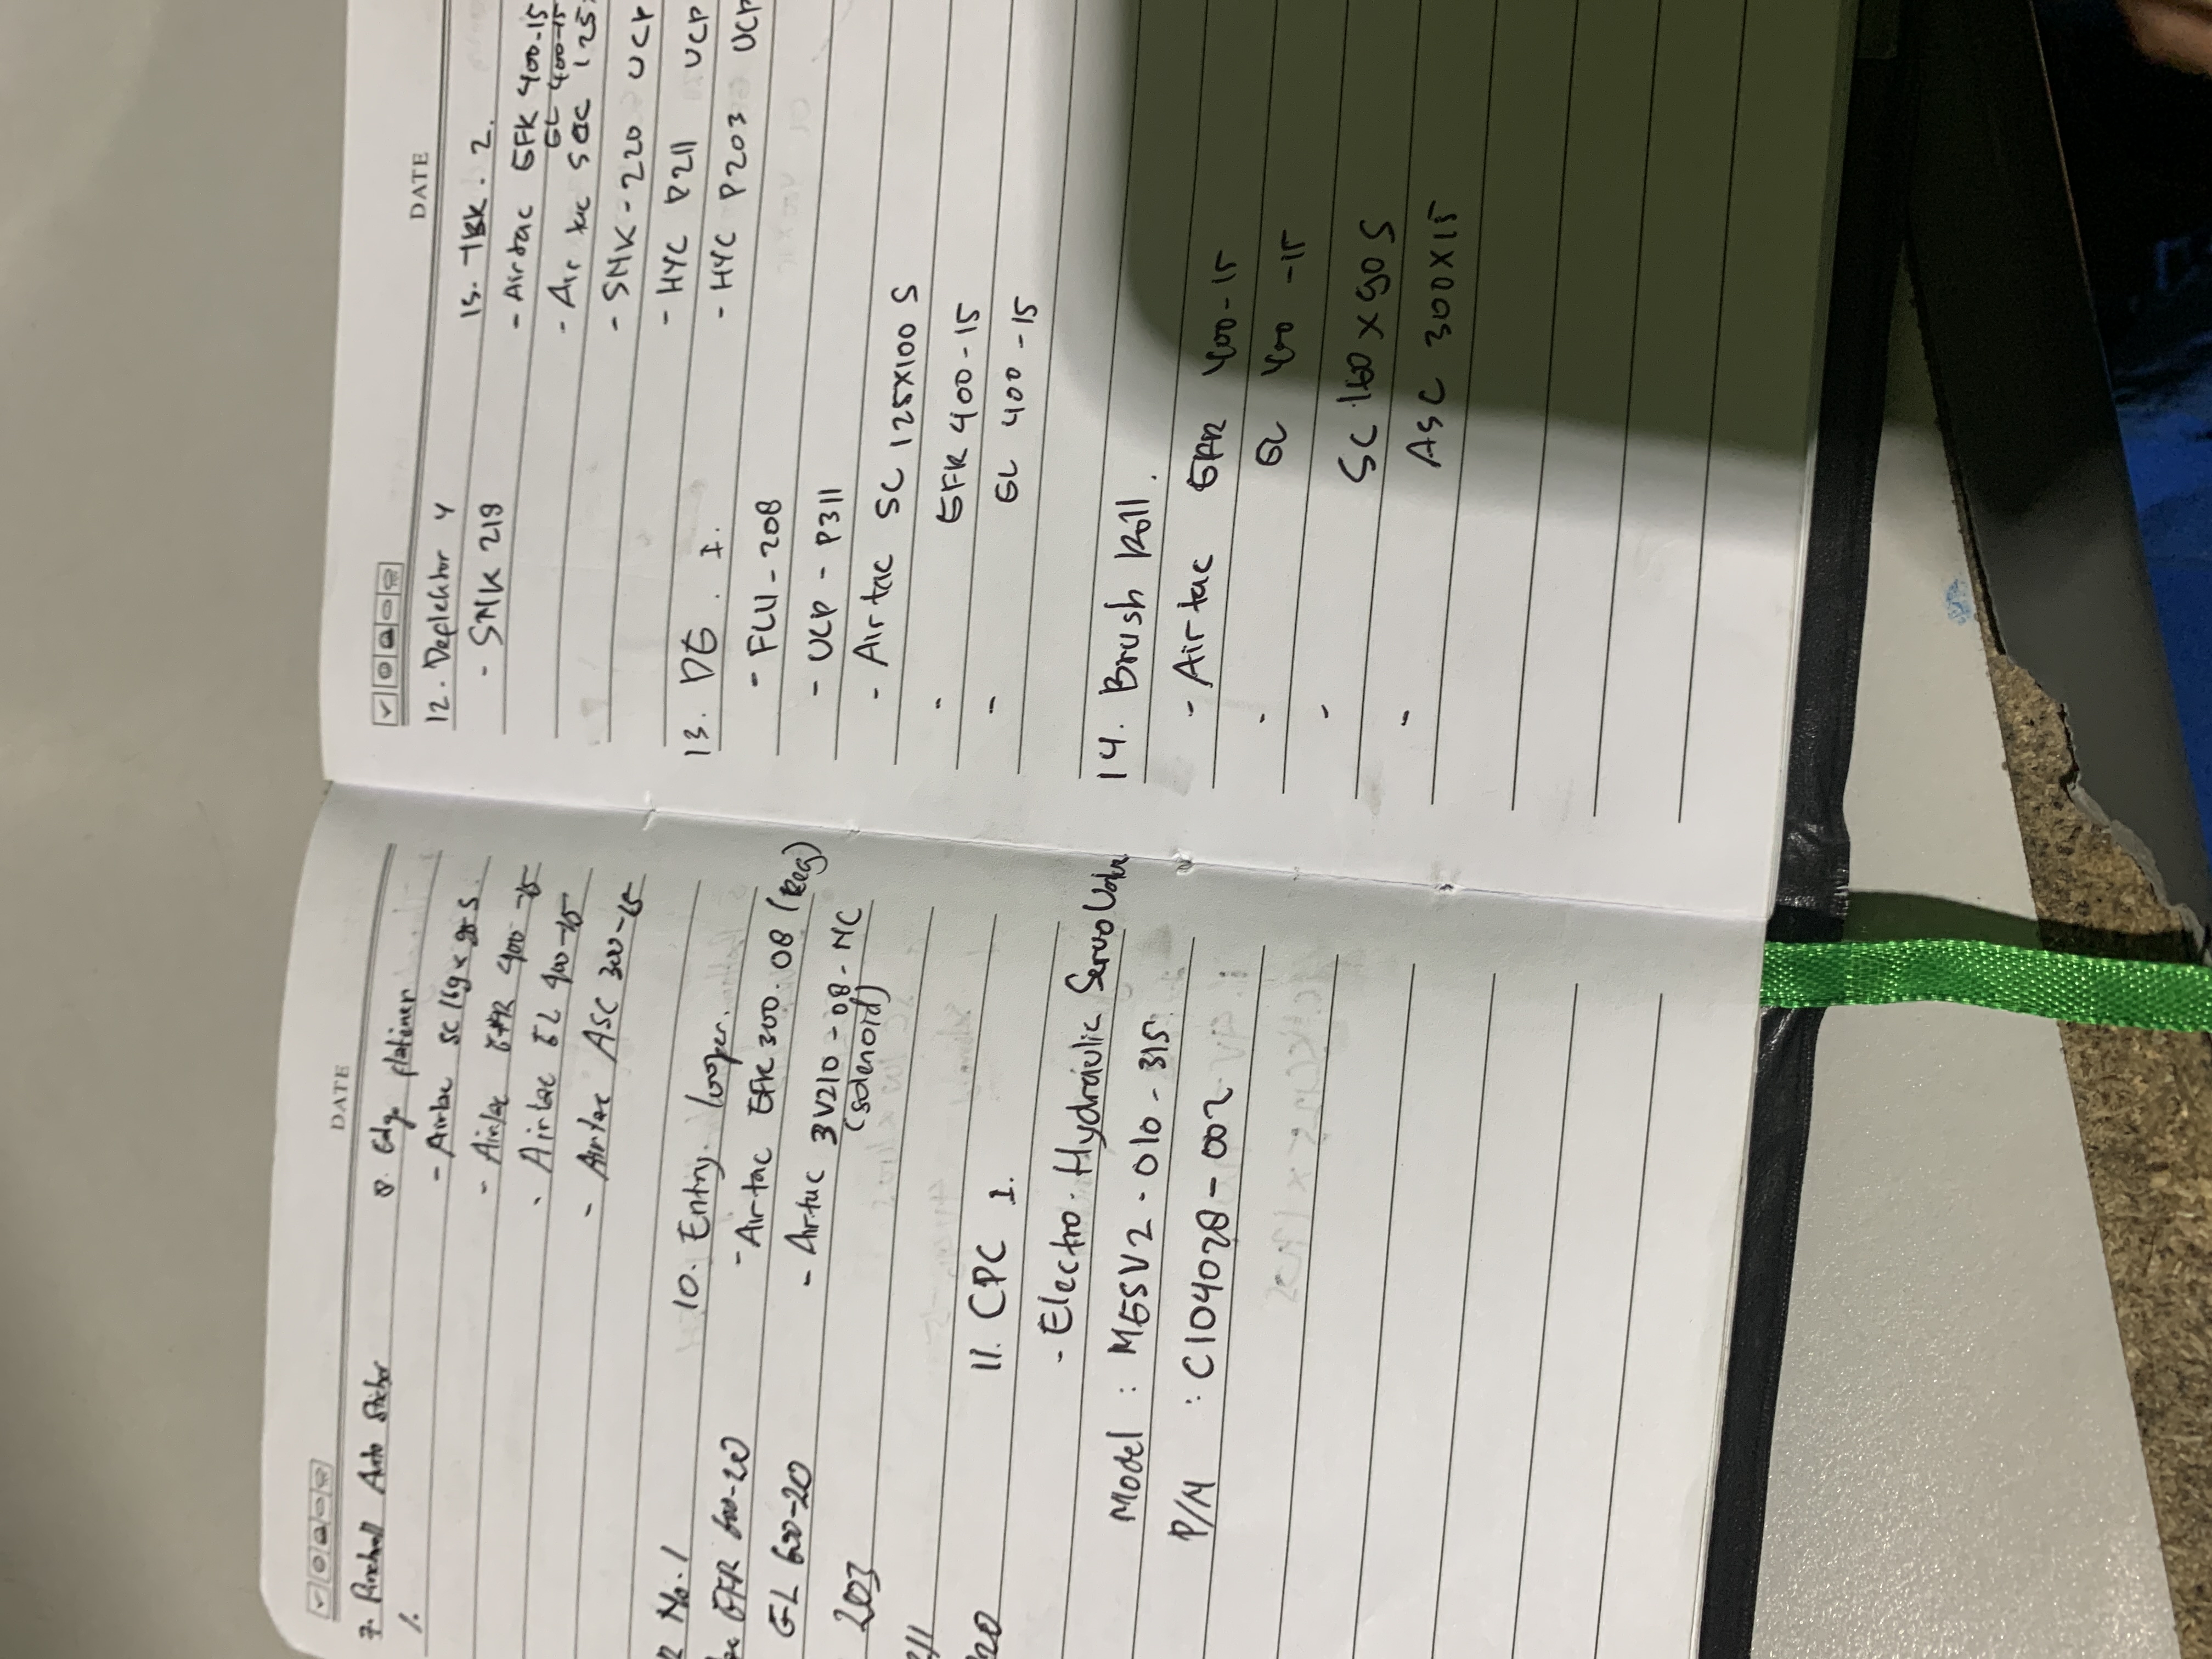 DATE
7. Pinchroll Auto Sticher
8. Edge flatener
1.
- Airtac SC
- Airtac 400-15
- Airtac GL 400-15
- Airtac ASC 300-15
No.1
10. Entry. looper.
GFR 600-20
- Airtac GFR 300.08 (Reg)
GL 600-20
- Airtac 3V210-08-NC
(Solenoid)
203
11. CPC 1.
- Electro. Hydraulic Servo Valve
Model : MGSV2-010-315
P/N : C104028-002
DATE
12. Deflektor 4
- SNK 219
15. TBR. 2.
- Airtac GFR 400-15
GL 400-15
- Air tac SC 125
- SNK-220 UCP
- HYC P211 UCP
- HYC P203 UCP
13. DG. 1.
- FCU-208
- UCP-P311
- Airtac SC 125X100 S
- GFR 400-15
- GL 400-15
14. Brush Roll.
- Airtac GFR 400-15
- GL 400-15
- SC 160 x 50 S
- ASC 300X15